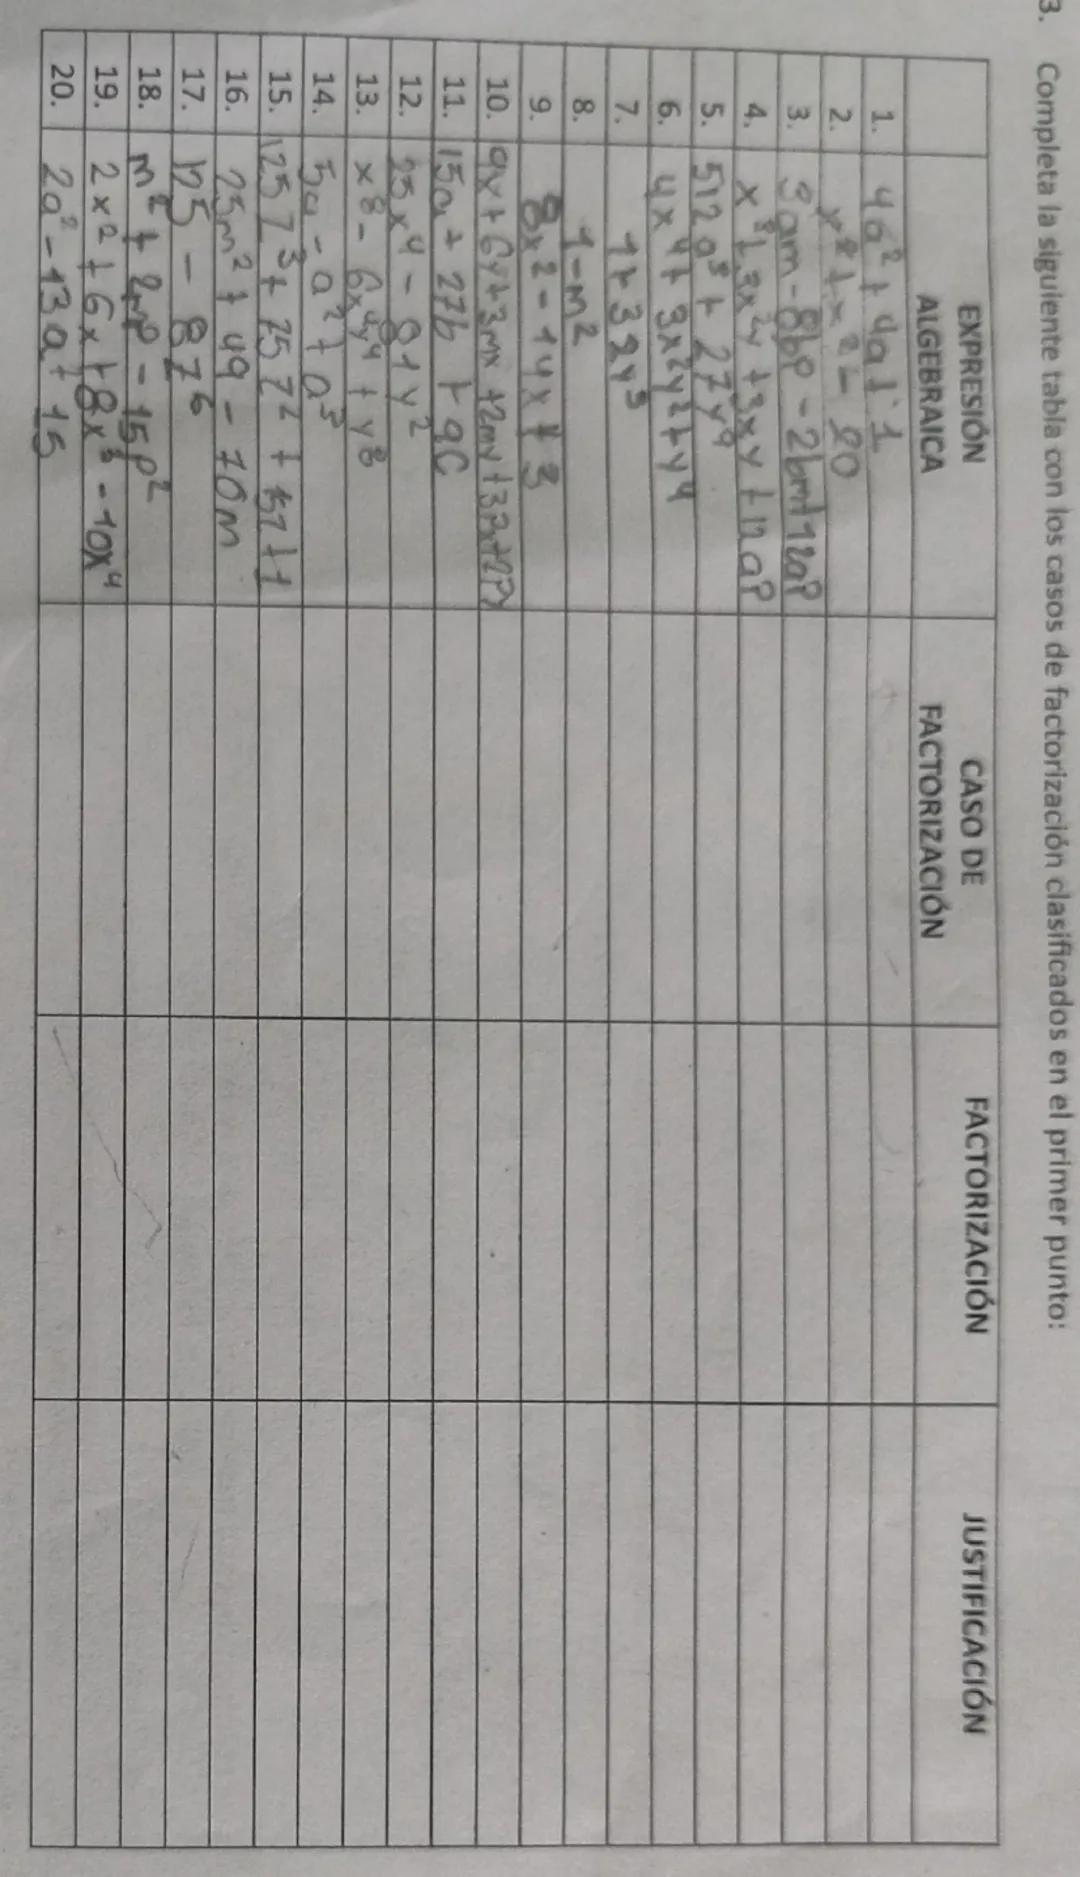 3. Completa la siguiente tabla con los casos de factorización clasificados en el primer punto:
EXPRESIÓN ALGEBRAICA CASO DE FACTORIZACIÓN FACTORIZACIÓN JUSTIFICACIÓN
1. 4a² + 4a + 1
2. x⁴ + x² - 20
3. 3am - 8bp - 2bm + 12ap
4. x³ + 3x²y + 3xy + 12ap
5. 512a³ + 27y⁹
6. 4x⁴ + 3x²y² + y⁴
7. 1 + 32y⁵
8. 1 - m²
9. 8x² - 14x + 3
10. 9x + 6y + 3mx + 2my + 3px + 2py
11. 15a + 27b + 9c
12. 25x⁴ - 81y²
13. x⁸ - 6x⁴y⁴ + y⁸
14. 5a - a² + a³
15. 125z³ + 75z² + 15z + 1
16. 25m² + 49 - 70m
17. 125 - 8z⁶
18. m² + 2mp - 15p²
19. 2x² + 6x + 8x³ - 10x⁴
20. 2a² - 13a + 15